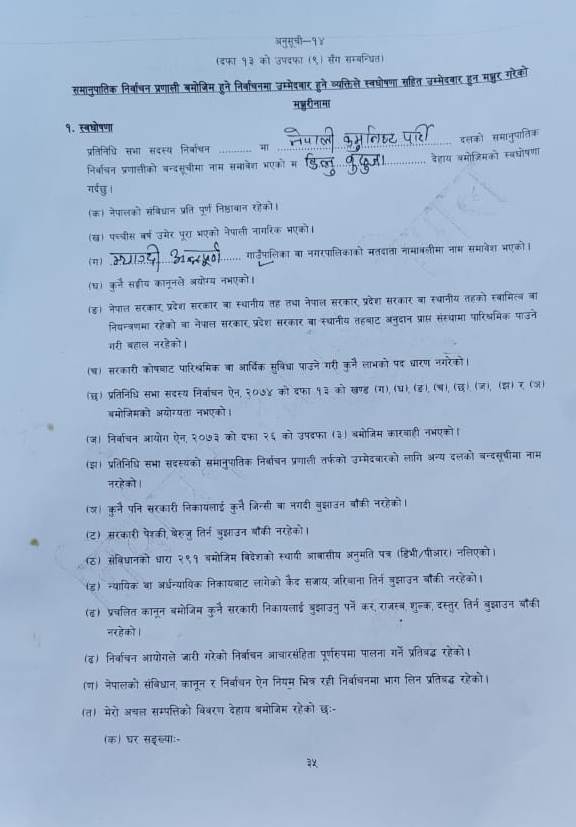 अनुसूची–१४
(दफा १३ को उपदफा (९) सँग सम्बन्धित)
समानुपातिक निर्वाचन प्रणाली बमोजिम हुने निर्वाचनमा उम्मेदवार हुने व्यक्तिले स्वघोषणा सहित उम्मेदवार हुन मञ्जुर गरेको
मञ्जुरीनामा
१. स्वघोषणा
प्रतिनिधि सभा सदस्य निर्वाचन .......... मा नेपाली कम्युनिष्ट पार्टी दलको समानुपातिक
निर्वाचन प्रणालीको बन्दसूचीमा नाम समावेश भएको म ............ देहाय बमोजिमको स्वघोषणा
गर्दछु।
(क) नेपालको संविधान प्रति पूर्ण निष्ठावान रहेको।
(ख) पच्चीस बर्ष उमेर पूरा भएको नेपाली नागरिक भएको।
(ग) म्याग्दी अन्नपूर्ण ...... गाउँपालिका वा नगरपालिकाको मतदाता नामावलीमा नाम समावेश भएको।
(घ) कुनै सङ्घीय कानूनले अयोग्य नभएको।
(ङ) नेपाल सरकार, प्रदेश सरकार वा स्थानीय तह तथा नेपाल सरकार, प्रदेश सरकार वा स्थानीय तहको स्वामित्व वा
नियन्त्रणमा रहेको वा नेपाल सरकार, प्रदेश सरकार वा स्थानीय तहबाट अनुदान प्राप्त संस्थामा पारिश्रमिक पाउने
गरी बहाल नरहेको।
(च) सरकारी कोषबाट पारिश्रमिक वा आर्थिक सुविधा पाउने गरी कुनै लाभको पद धारण नगरेको।
(छ) प्रतिनिधि सभा सदस्य निर्वाचन ऐन, २०७४ को दफा १३ को खण्ड (ग), (घ), (ङ), (च), (छ), (ज), (झ) र (ञ)
बमोजिमको अयोग्यता नभएको।
(ज) निर्वाचन आयोग ऐन, २०७३ को दफा २६ को उपदफा (३) बमोजिम कारबाही नभएको।
(झ) प्रतिनिधि सभा सदस्यको समानुपातिक निर्वाचन प्रणाली तर्फको उम्मेदवारको लागि अन्य दलको बन्दसूचीमा नाम
नरहेको।
(ञ) कुनै पनि सरकारी निकायलाई कुनै जिन्सी वा नगदी बुझाउन बाँकी नरहेको।
(ट) सरकारी पेश्की, बेरुजु तिर्न बुझाउन बाँकी नरहेको।
(ठ) संविधानको धारा २९१ बमोजिम विदेशको स्थायी आवासीय अनुमति पत्र (डिभी/पीआर) नलिएको।
(ड) न्यायिक वा अर्धन्यायिक निकायबाट लागेको कैद सजाय, जरिवाना तिर्न बुझाउन बाँकी नरहेको।
(ढ) प्रचलित कानून बमोजिम कुनै सरकारी निकायलाई बुझाउनु पर्ने कर, राजस्व, शुल्क, दस्तुर तिर्न बुझाउन बाँकी
नरहेको।
(ढ) निर्वाचन आयोगले जारी गरेको निर्वाचन आचारसंहिता पूर्णरुपमा पालना गर्न प्रतिबद्ध रहेको।
(ण) नेपालको संविधान, कानून र निर्वाचन ऐन नियम भित्र रही निर्वाचनमा भाग लिन प्रतिबद्ध रहेको।
(त) मेरो अचल सम्पत्तिको विवरण देहाय बमोजिम रहेको छः-
(क) घर सङ्ख्याः-
३५